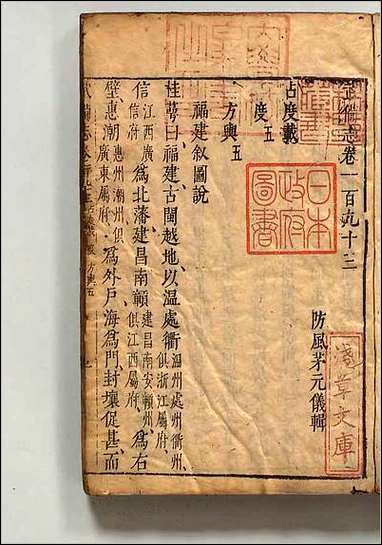 武備志卷一百九十三
防風茅元儀輯
占度載
度五
方輿五
福建敘圖說
桂萼曰福建古閩越地以温處衢溫州處州衢州俱浙江屬府
信江西廣信府為北藩建昌南贛建昌南安贛州俱江西屬府為右
壁惠潮惠州潮州俱廣東屬府為外戶海為門封壤促甚而
日本
政府
圖書
淺草文庫